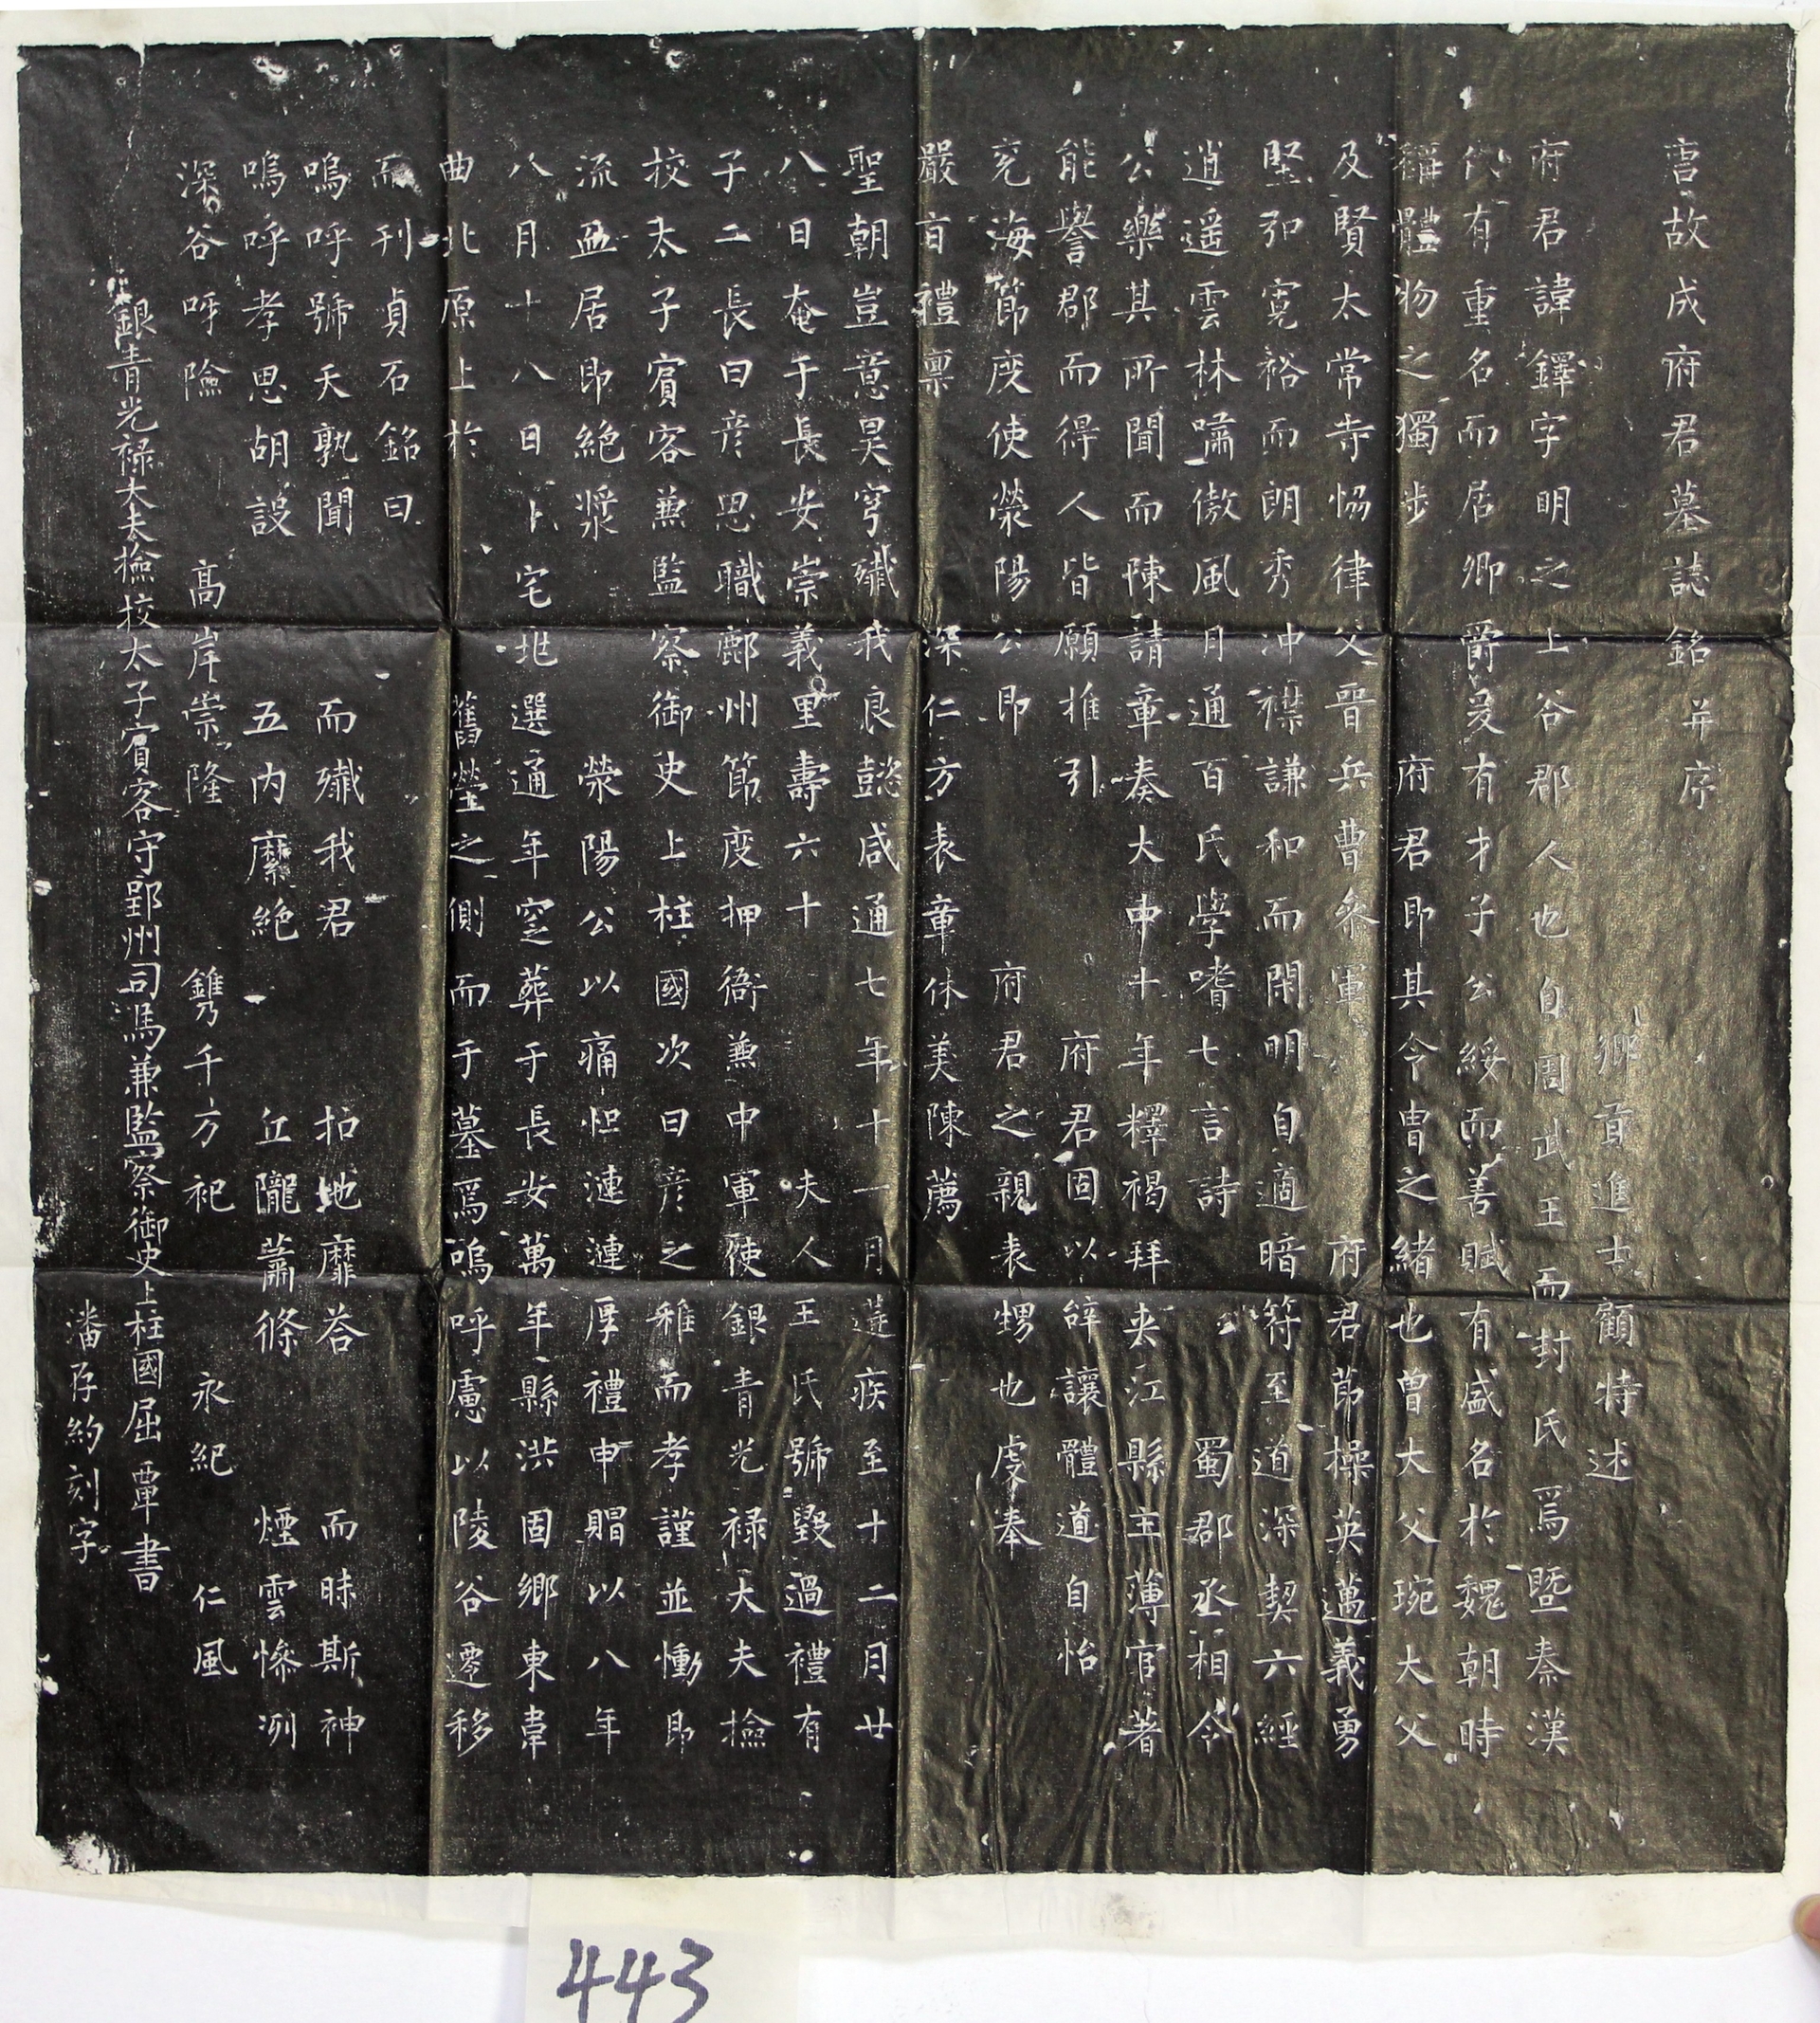 唐故成府君墓誌銘并序
鄉貢進士顧特述
府君諱鐸字明之上谷郡人也自周武王而封氏焉暨秦漢
代有重名而居卿爵爰有才子公綏而善賦有盛名於魏朝時
稱體物之獨步府君即其令冑之緒也曾大父琬大父
及賢太常寺恊律父晉兵曹叅軍府君節操英邁義勇
堅弘寬裕而朗秀沖襟謙和而閑明自適暗符至道深契六經
逍遥雲林嘯傲風月通百氏學嗜七言詩蜀郡丞相令
公樂其所聞而陳請章奏大中十年釋褐拜夾江縣主薄官著
能譽郡而得人皆願推引府君固以辞讓體道自怡
兖海節度使滎陽公即府君之親表甥也虔奉
嚴旨禮禀深仁方表章休美陳薦
聖朝豈意昊穹殲我良懿咸通七年十一月遘疾至十二月廿
八日奄于長安崇義里壽六十夫人王氏號毀過禮有
子二長曰彦思職鄜州節度押衙兼中軍使銀青光禄大夫撿
校太子賓客兼監察御史上柱國次曰彦之稚而孝謹並慟即
流血居即絶漿滎陽公以痛怛漣漣厚禮申賵以八年
八月十八日卜宅兆選通年窆葬于長安萬年縣洪固鄉東韋
曲北原上於舊塋之側而于墓焉嗚呼慮以陵谷遷移
而刊貞石銘曰
嗚呼號天孰聞而殲我君扣地靡荅而昧斯神
嗚呼孝思胡設五内縻絶丘隴蕭條煙雲慘洌
深谷呼險高岸崇隆鐫千方祀永紀仁風
銀青光禄大夫撿校太子賓客守郢州司馬兼監察御史上柱國屈賁書
潘存約刻字
443